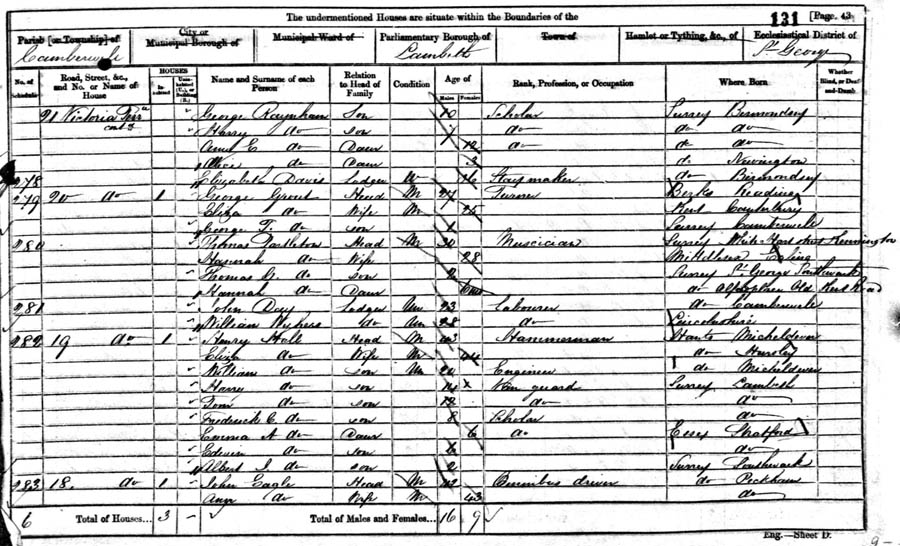 The undermentioned Houses are situate within the Boundaries of the 131 [Page. 43
Parish [or Township] of Camberwell
City or Municipal Borough of
Municipal Ward of
Parliamentary Borough of Lambeth
Town of
Hamlet or Tything, &c., of
Ecclesiastical District of St George
No. of Schedule
Road, Street, &c., and No. or Name of House
HOUSES
Inhabited
Uninhabited (U.), or Building (B.)
Name and Surname of each Person
Relation to Head of Family
Condition
Age of
Males Females
Rank, Profession, or Occupation
Where Born
Whether Blind, or Deaf-and-Dumb
21 Victoria Terr contd George Raynham Son 10 Scholar Surrey Bermondsey
Harry do son 7 do do do
E do Daur 12 do do do
Alice do Daur 3 do Newington
278 Elizabeth Davis Lodger W Staymaker do Bermondsey
279 20 do 1 George Grout Head M 27 Turner Berks Reading
Eliza do Wife M 25 Kent Canterbury
George T. do son 1 Surrey Camberwell
280 Thomas Head M 30 Muscician Surrey White Kennington
Hannah do Wife 28
Thomas do son 2 Surrey St George Southwark
Hannah do Daur do Old Kent Road
281 John Day Lodger Un 23 Labourer do Camberwell
William do Un 28 do Lincolnshire
282 19 do 1 Henry Hall Head M Hammerman Hants Micheldever
Eliza do Wife M 44 do Hursley
William do son Un 20 Engineer do Micheldever
Harry do son 14 Van guard Surrey Lambeth
Tom do son 12 do do
Frederick C. do son 8 Scholar do
Emma A do Daur 6 do Essex Stratford
Edwin do son do
Albert J. do son 2 Surrey Southwark
283 18. do 1 John Eagle Head M 42 Omnibus driver do Peckham
Ann do Wife M 43 do
6 Total of Houses... 3 – Total of Males and Females... 16 9
Eng.—Sheet D.